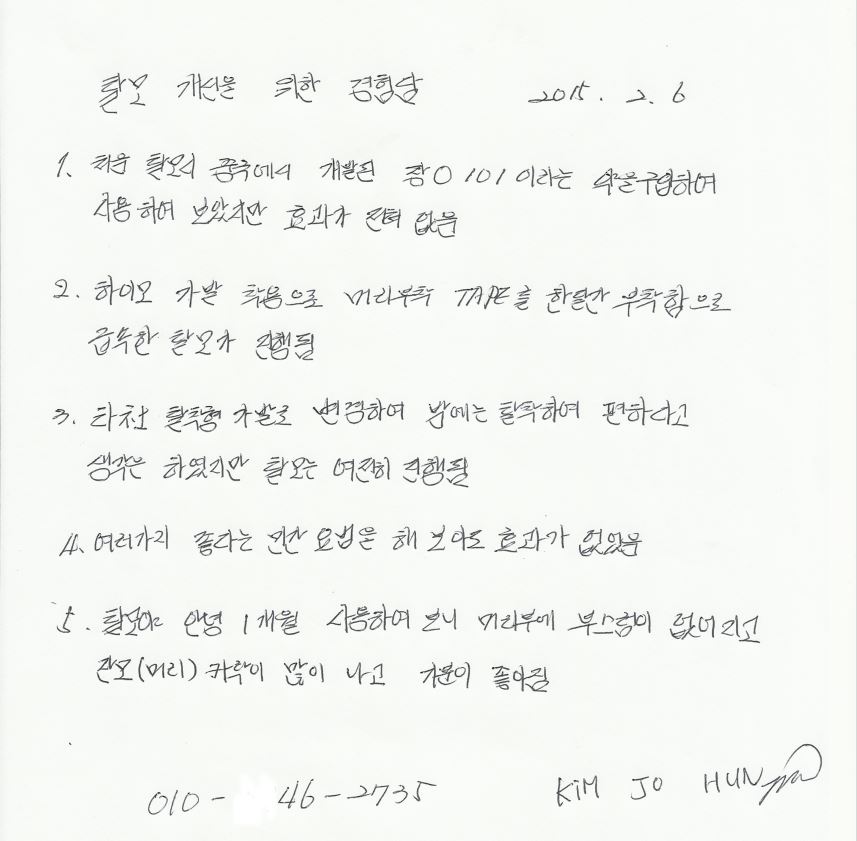 탈모 개선을 위한 경험담 2015. 2. 6
1. 처음 탈모시 중국에서 개발된 장O 101 이라는 약을 구입하여
사용하여 보았지만 효과가 전혀 없음
2. 하이모 가발 착용으로 머리부착 TAPE를 한달간 부착함으로
급속한 탈모가 진행됨
3. 타社 탈착형 가발로 변경하여 밤에는 탈착하여 편하다고
생각은 하였지만 탈모는 여전히 진행됨
4. 여러가지 좋다는 민간 요법을 해 보아도 효과가 없었음
5. 탈모야 안녕 1개월 사용하여 보니 머리부에 부스럼이 없어지고
잔모(머리) 카락이 많이 나고 기분이 좋아짐
010- 46-2735 KIM JO HUN